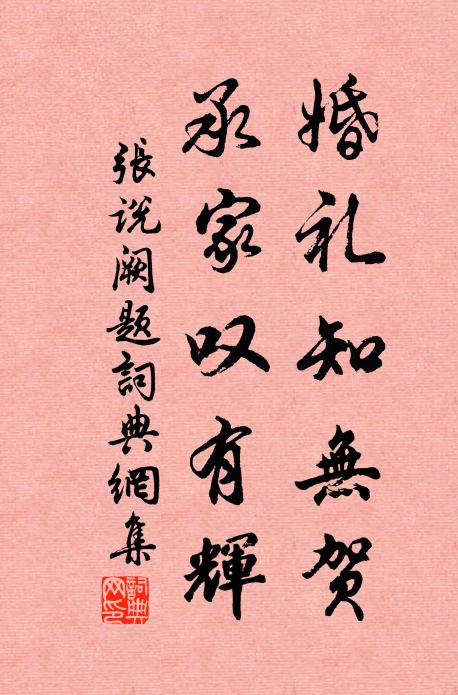 婚礼知無贺
承家叹有輝
張说阙题詞典網集
詞典网印